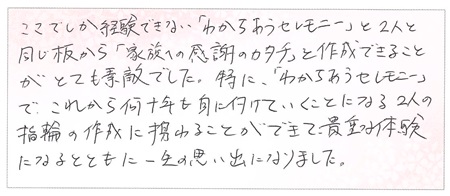 ここでしか経験できない「わかちあうセレモニー」と2人と
同じ板から「家族への感謝のカタチ」と作成できること
がとても素敵でした。特に、「わかちあうセレモニー」
で、これから何十年も身に付けていくことになる2人の
指輪の作成に携わることができて、貴重な体験
になるとともに一生の思い出になりました。